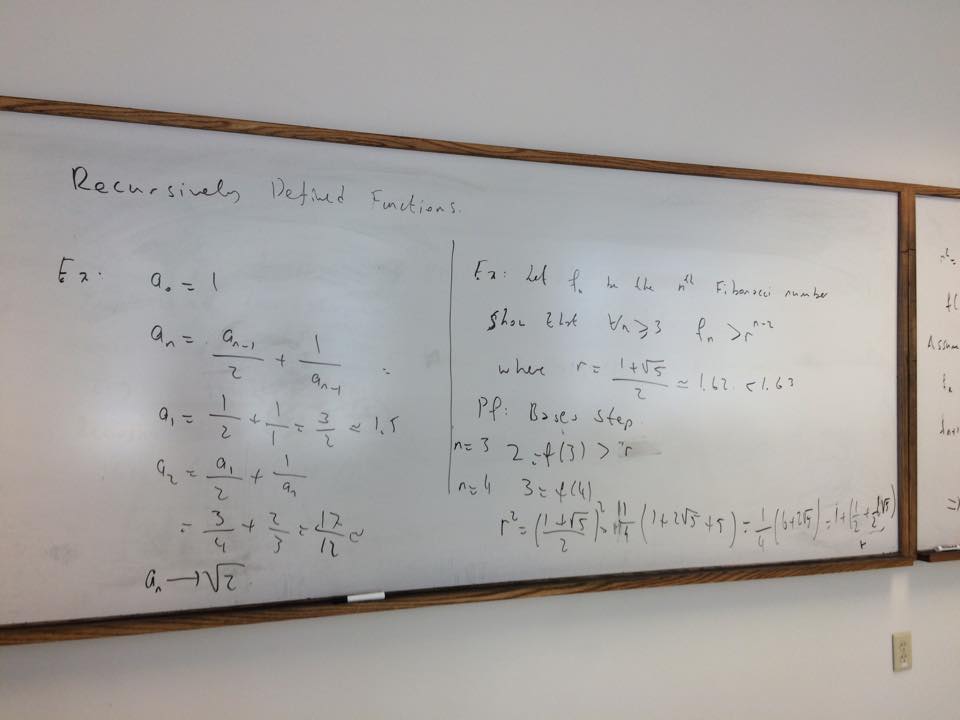 Recursively Defined Functions.
Ex: a₀ = 1
aₙ = aₙ₋₁/2 + 1/aₙ₋₁ =
a₁ = 1/2 + 1/1 = 3/2 ≈ 1.5
a₂ = a₁/2 + 1/a₁
= 3/4 + 2/3 = 17/12 ≈
aₙ → √2
Ex: Let fₙ be the nᵗʰ Fibonacci number
Show that ∀n ≥ 3 fₙ > rⁿ⁻²
where r = (1+√5)/2 ≈ 1.62 < 1.63
Pf: Bases Step
n=3 2 = f(3) > r
n=4 3 = f(4)
r² = ((1+√5)/2)² = 1/4 (1+2√5+5) = 1/4 (6+2√5) = 1 + (1/2 + 1/2 √5)
r
r² =
f(
Assum
fₙ
fₙ₊₁
⇒